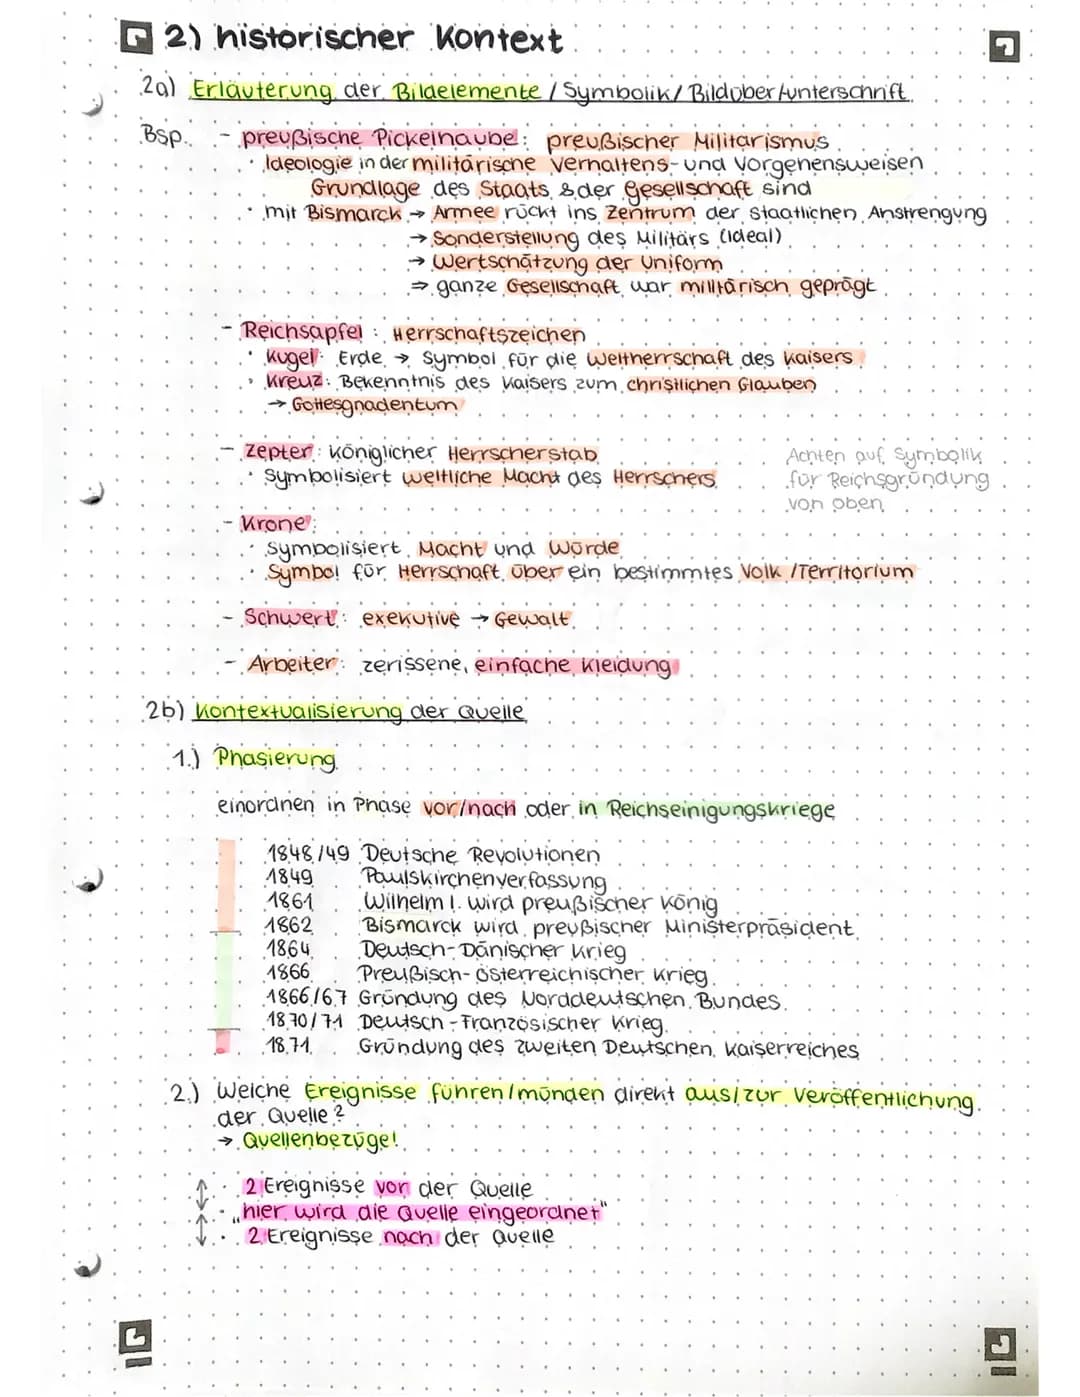 2) historischer Kontext
2a) Erläuterung der Bildelemente / Symbolik / Bildüber-/unterschrift
Bsp. - preußische Pickelhaube: preußischer Militarismus
· Ideologie in der militärische Verhaltens- und Vorgehensweisen
Grundlage des Staats & der Gesellschaft sind
· mit Bismarck → Armee rückt ins Zentrum der staatlichen Anstrengung
→ Sonderstellung des Militärs (Ideal)
→ Wertschätzung der Uniform
⇒ ganze Gesellschaft war militärisch geprägt
- Reichsapfel: Herrschaftszeichen
· Kugel: Erde → Symbol für die Weltherrschaft des Kaisers
· Kreuz: Bekenntnis des Kaisers zum christlichen Glauben
→ Gottesgnadentum
- Zepter: königlicher Herrscherstab
· Symbolisiert weltliche Macht des Herrschers
Achten auf Symbolik
für Reichsgründung
von oben
- Krone:
· symbolisiert Macht und Würde
· Symbol für Herrschaft über ein bestimmtes Volk / Territorium
- Schwert: exekutive → Gewalt
- Arbeiter: zerissene, einfache Kleidung
2b) Kontextualisierung der Quelle
1.) Phasierung
einordnen in Phase vor/nach oder in Reichseinigungskriege
1848/49 Deutsche Revolutionen
1849 Paulskirchenverfassung
1861 Wilhelm I. wird preußischer König
1862 Bismarck wird preußischer Ministerpräsident
1864 Deutsch-Dänischer Krieg
1866 Preußisch-österreichischer Krieg
1866/67 Gründung des Norddeutschen Bundes
1870/71 Deutsch-Französischer Krieg
1871 Gründung des zweiten Deutschen Kaiserreiches
2.) Welche Ereignisse führen/münden direkt aus/zur Veröffentlichung
der Quelle?
→ Quellenbezüge!
· 2 Ereignisse vor der Quelle
· „hier wird die Quelle eingeordnet"
· 2 Ereignisse nach der Quelle